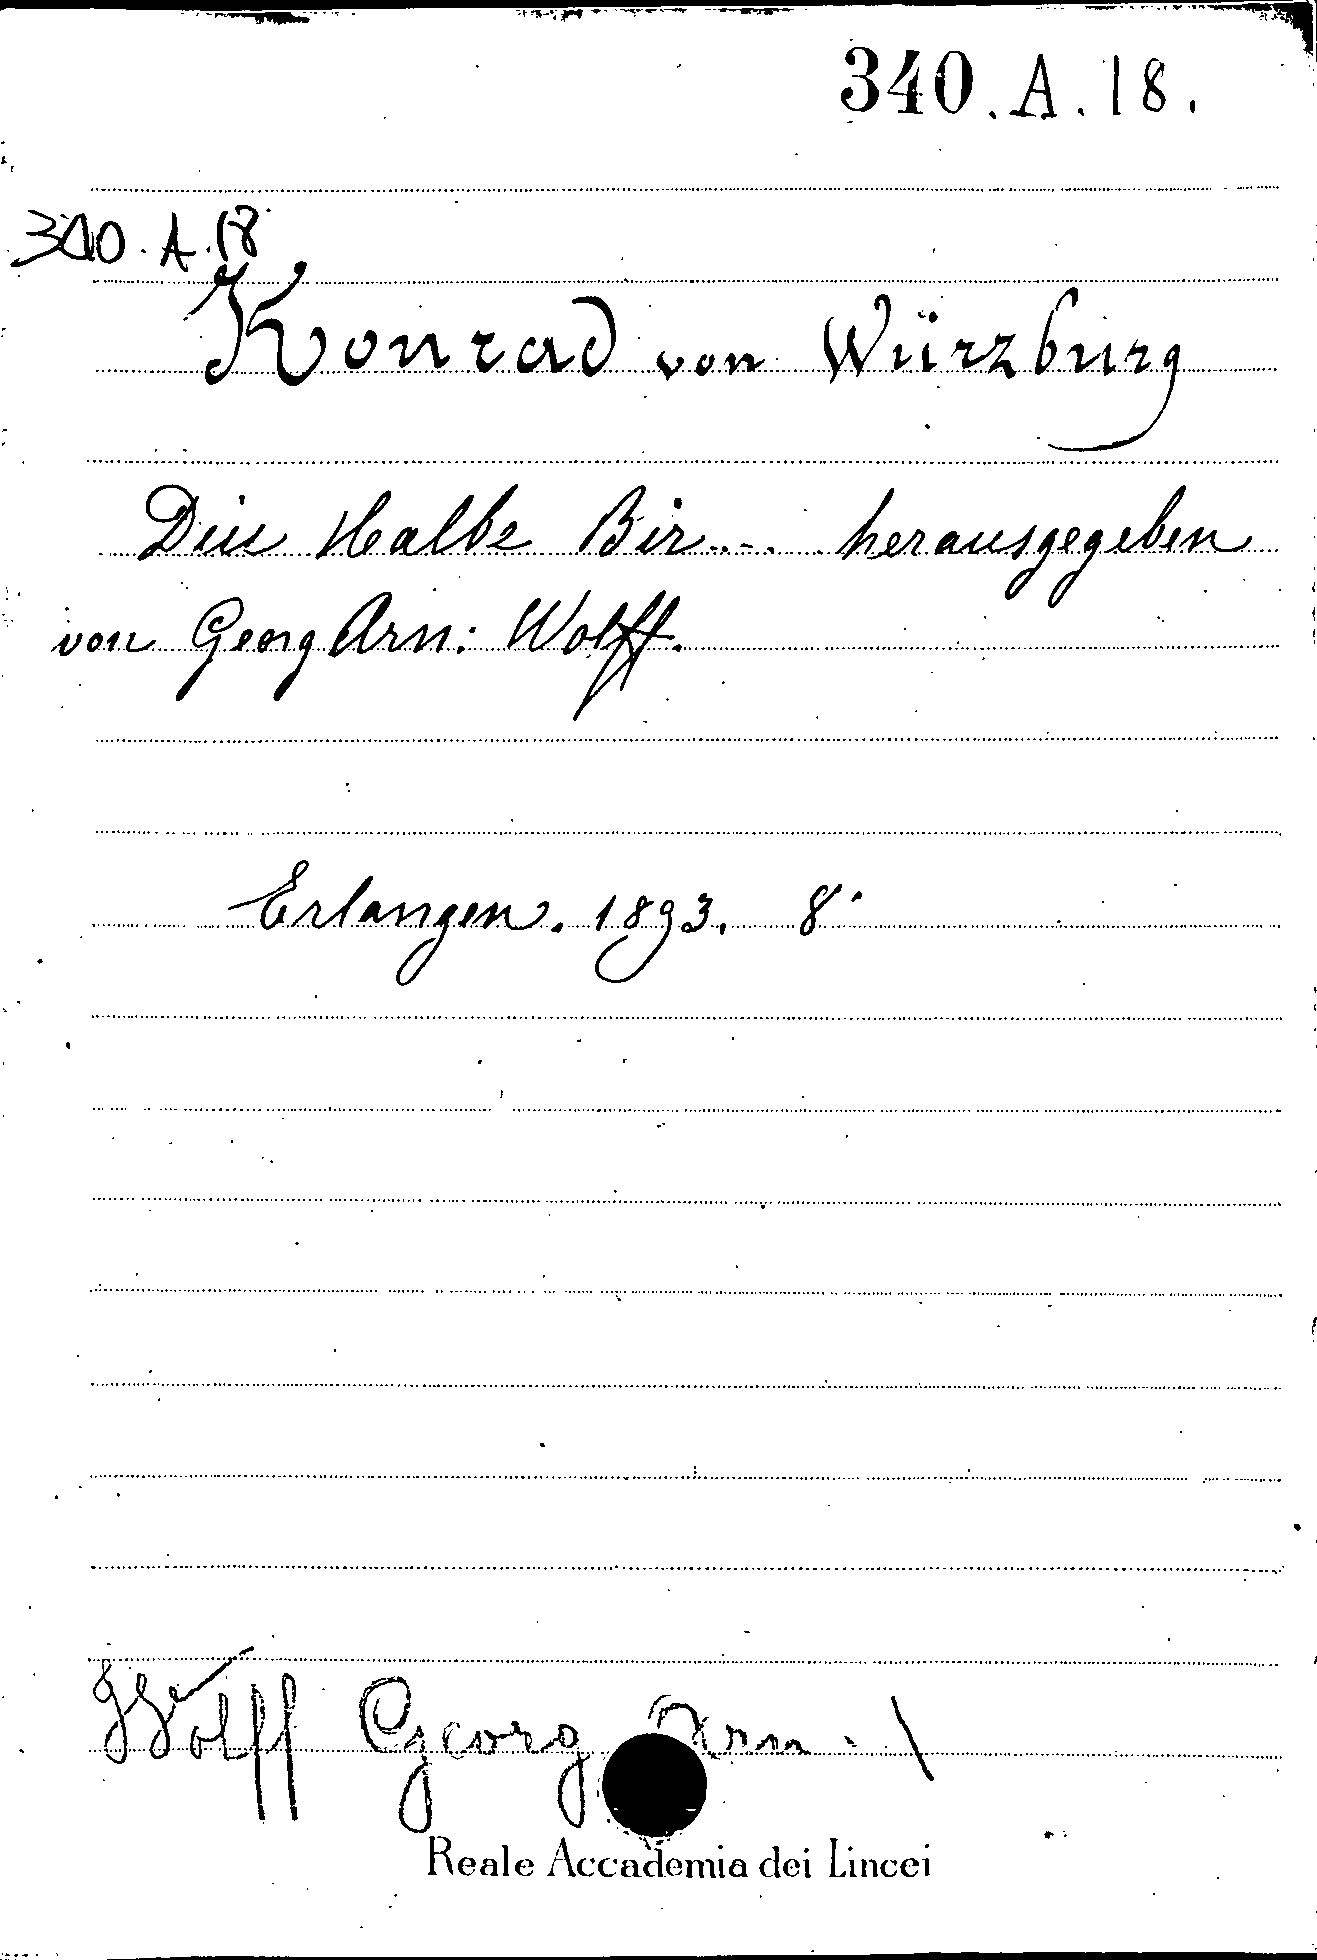 340.A.18.
340.A.18
Konrad von Würzburg
Diu Halbe Bir.... herausgegeben
von Georg Arn: Wolff.
Erlangen. 1893. 8°
Wolff Georg Arn.
Reale Accademia dei Lincei